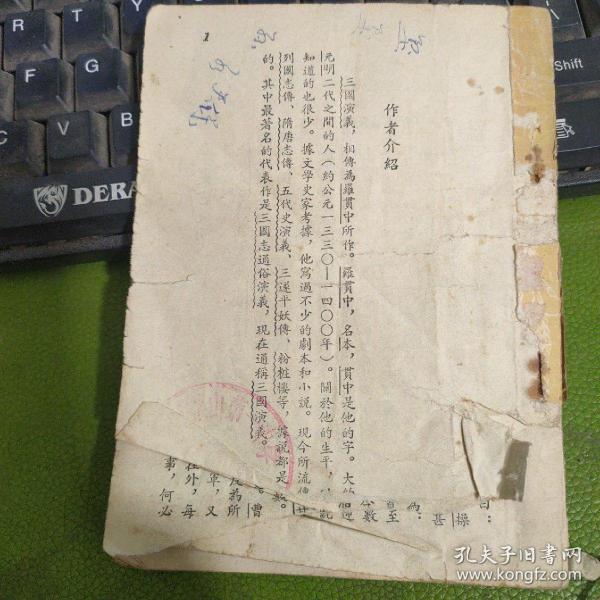 作者介紹
三國演義，相傳為羅貫中所作。羅貫中，名本，貫中是他的字。大約
元明二代之間的人（約公元一三三〇—一四〇〇年）。關於他的生平，
知道的也很少。據文學史家考據，他寫過不少的劇本和小說。現今所流傳
列國志傳、隋唐志傳、五代史演義、三遂平妖傳、粉粧樓等，據說都是
的。其中最著名的代表作是三國志通俗演義，現在通稱三國演義。
1
曰：
操
甚
至
數
曹
為所
軍，又
在外，每
事，何必
DERA
Shift
R
T
Y
U
孔夫子旧书网
www.kongfz.com